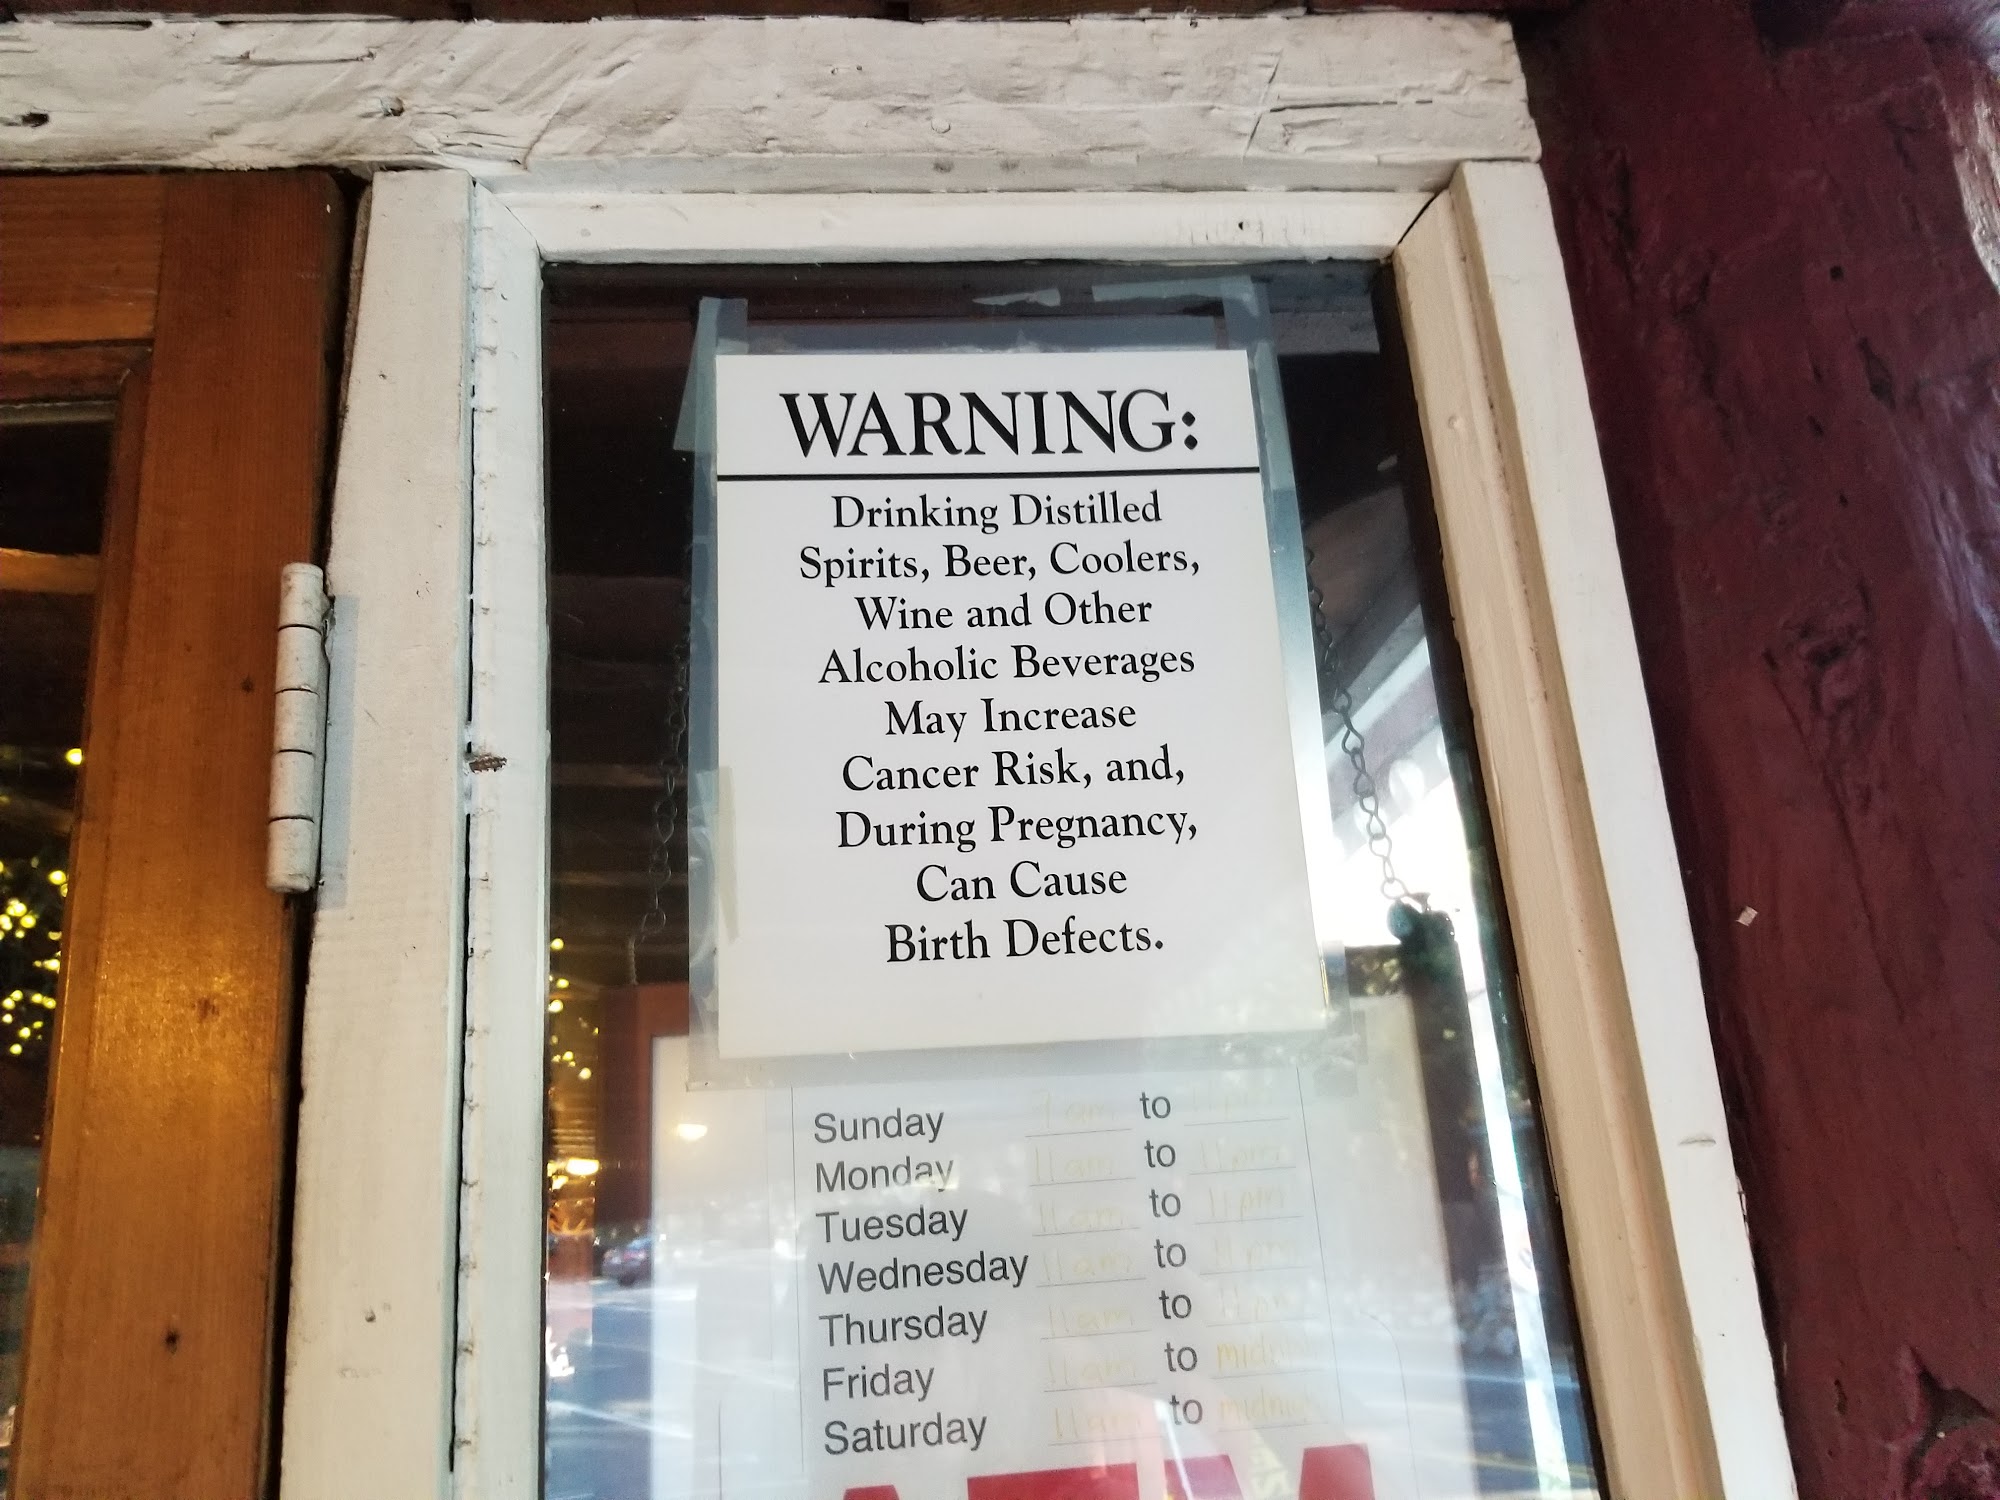 WARNING:
Drinking Distilled
Spirits, Beer, Coolers,
Wine and Other
Alcoholic Beverages
May Increase
Cancer Risk, and,
During Pregnancy,
Can Cause
Birth Defects.
Sunday to
Monday 11am to 11pm
Tuesday 11am to 11pm
Wednesday 11am to 11pm
Thursday 11am to 11pm
Friday 11am to
Saturday 11am to